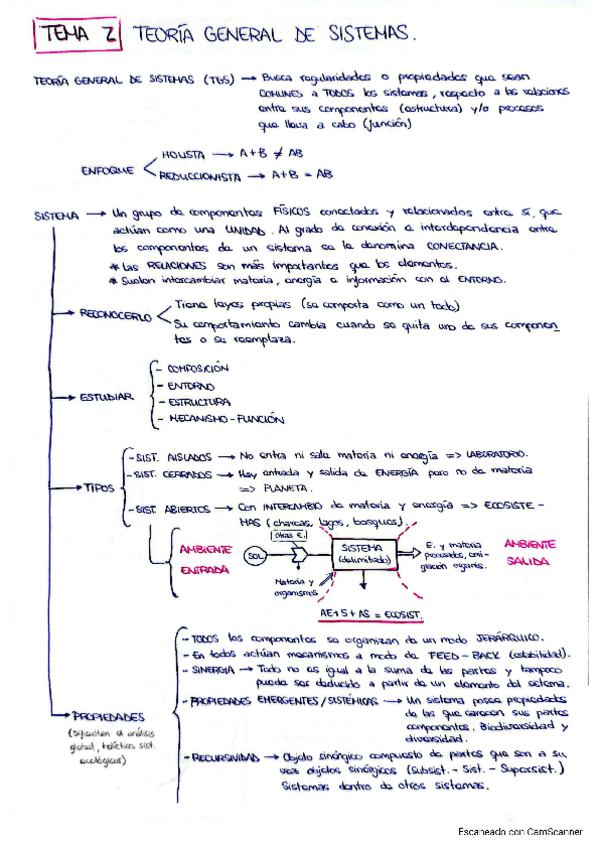 TEMA 2 TEORÍA GENERAL DE SISTEMAS.
TEORÍA GENERAL DE SISTEMAS (TGS) → Busca regularidades o propiedades que sean
COMUNES a TODOS los sistemas, respecto a las relaciones
entre sus componentes (estructura) y/o procesos
que lleva a cabo (función)
ENFOQUE
HOLISTA → A+B ≠ AB
REDUCCIONISTA → A+B = AB
SISTEMA → Un grupo de componentes FÍSICOS conectados y relacionados entre sí, que
actúan como una UNIDAD. Al grado de conexión e interdependencia entre
los componentes de un sistema se la denomina CONECTANCIA.
* Las RELACIONES son más importantes que los elementos.
* Suelen intercambiar materia, energía e información con el ENTORNO.
→ RECONOCERLO
Tiene leyes propias (se comporta como un todo)
Su comportamiento cambia cuando se quita uno de sus componen
tes o se reemplaza.
→ ESTUDIAR
- COMPOSICIÓN
- ENTORNO
- ESTRUCTURA
- MECANISMO-FUNCIÓN
→ TIPOS
- SIST. AISLADOS → No entra ni sale materia ni energía => LABORATORIO.
- SIST. CERRADOS → Hay entrada y salida de ENERGÍA pero no de materia
=> PLANETA.
- SIST. ABIERTOS → Con INTERCAMBIO de materia y energía => ECOSISTE-
MAS (charcas, lagos, bosques).
AMBIENTE
ENTRADA
Otras E.
SOL
Materia y
organismos
SISTEMA
(delimitado)
E. y materia
procesados, emi-
gración organis.
AMBIENTE
SALIDA
AE + S + AS = ECOSIST.
→ PROPIEDADES
(Dificultan el análisis
global, holístico sist.
ecológicos)
- TODOS los componentes se organizan de un modo JERÁRQUICO.
- En todos actúan mecanismos a modo de FEED-BACK (estabilidad).
- SINERGIA → Todo no es igual a la suma de las partes y tampoco
puede ser deducido a partir de un elemento del sistema.
- PROPIEDADES EMERGENTES/SISTÉMICAS → Un sistema posee propiedades
de las que carecen sus partes
componentes. Biodiversidad y
diversidad.
- RECURSIVIDAD → Objeto sinérgico compuesto de partes que son a su
vez objetos sinérgicos (Subsist. - Sist. - Supersist.)
Sistemas dentro de otros sistemas.
Escaneado con CamScanner